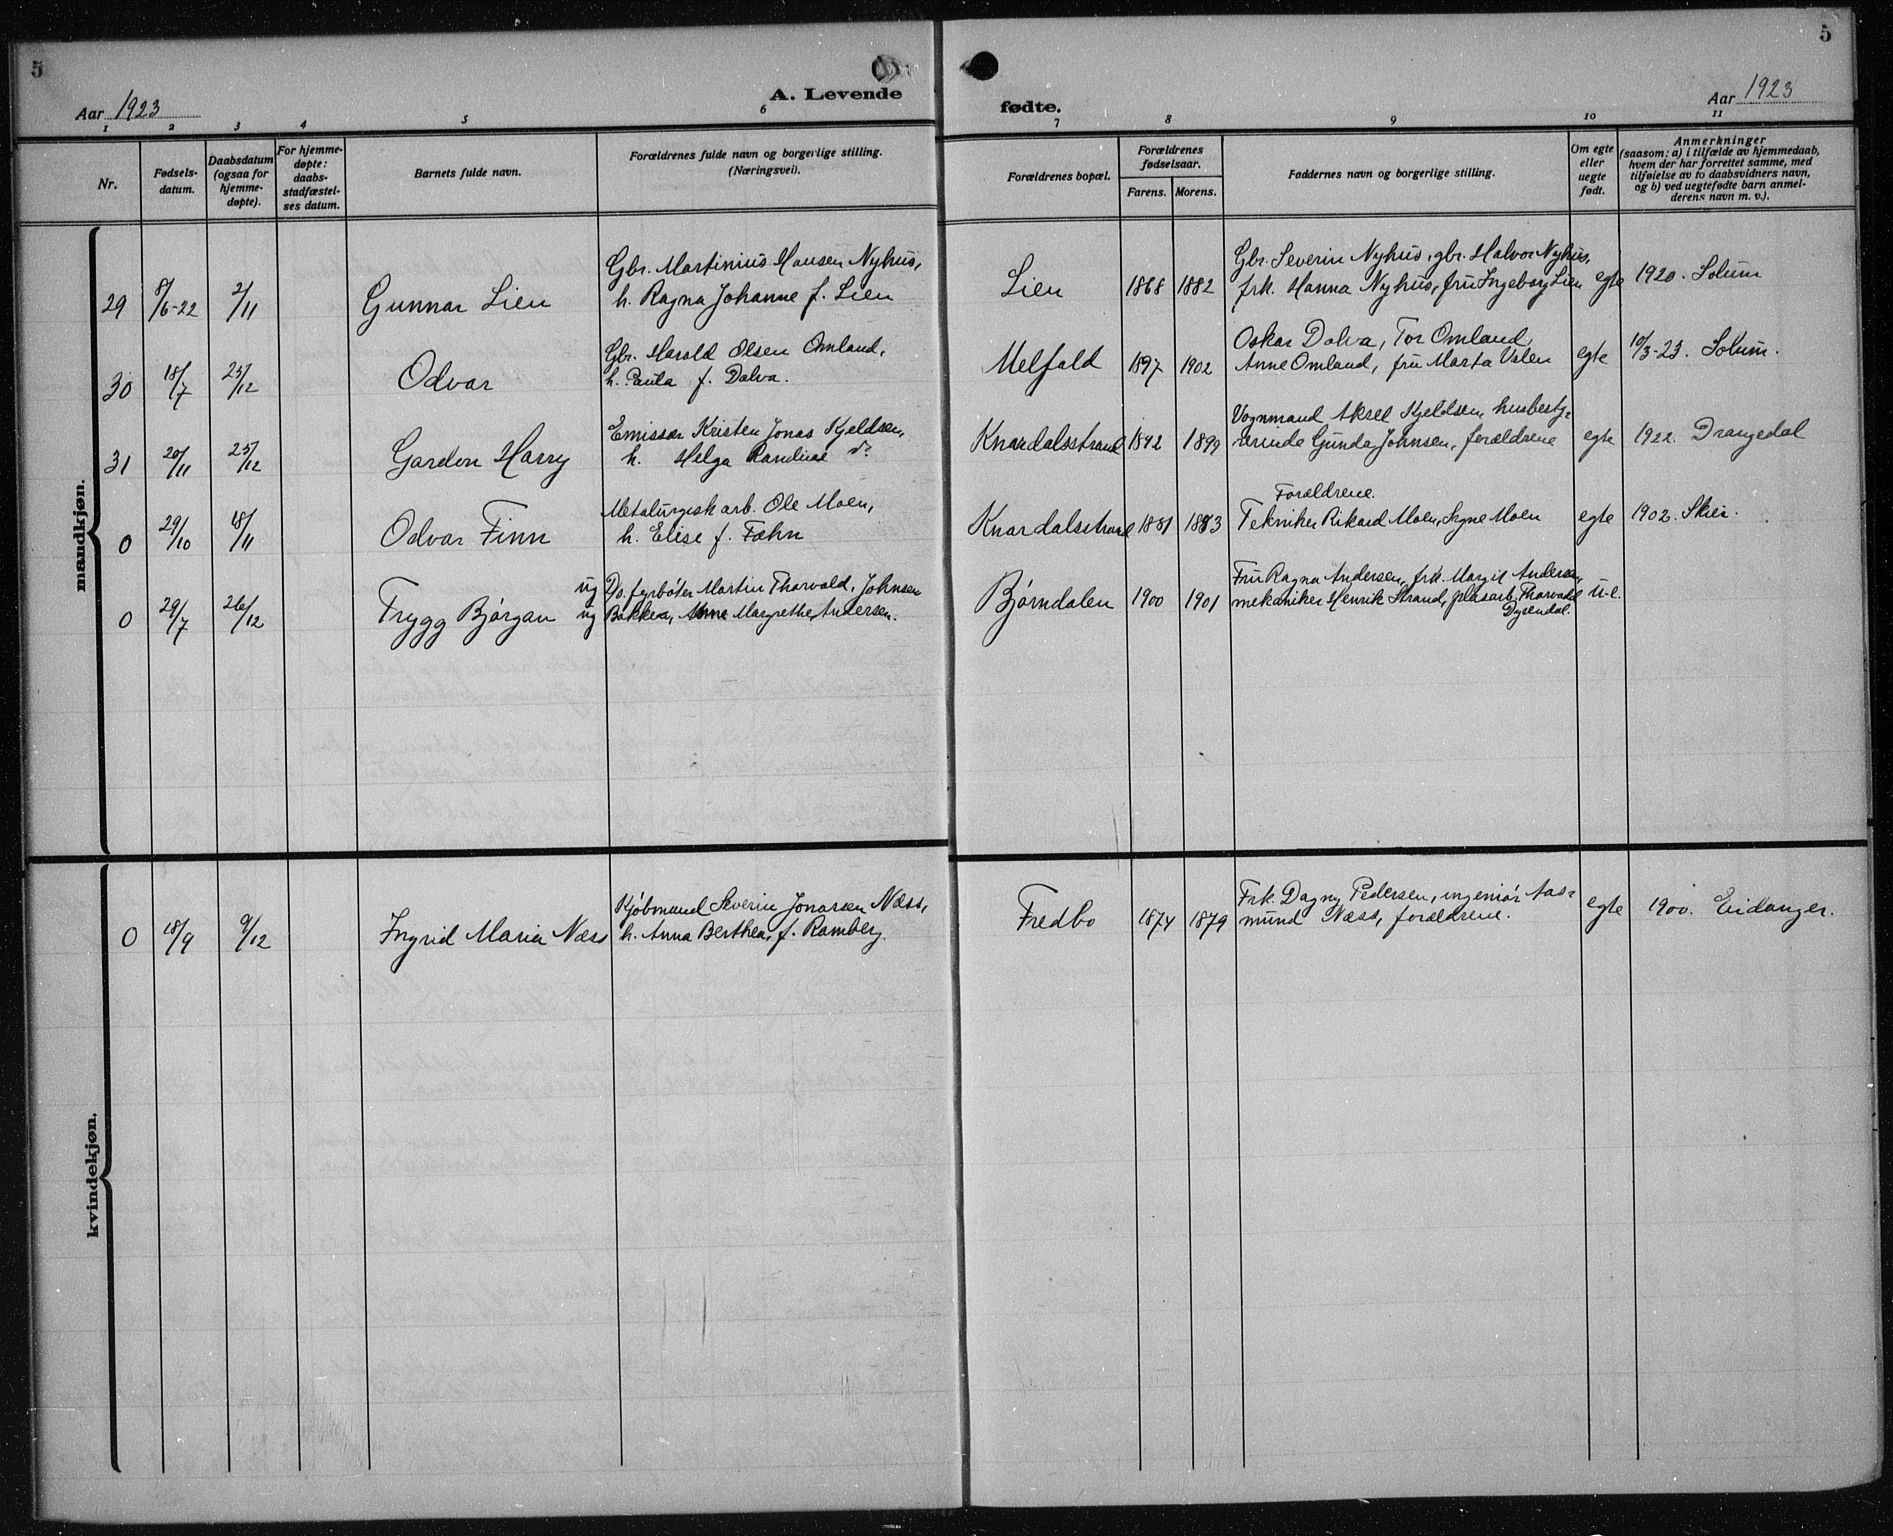 5
5
Aar 1923
A. Levende
fødte.
Aar 1923
1 2 3 4 5 6 7 8 9 10 11
Nr.
Fødsels-
datum.
Daabsdatum
(ogsaa for
hjemme-
døpte).
For hjemme-
døpte:
daabs-
stadfæstel-
ses datum.
Barnets fulde navn.
Forældrenes fulde navn og borgerlige stilling.
(Næringsvei).
Forældrenes bopæl.
Forældrenes
fødselsaar.
Farens. Morens.
Faddernes navn og borgerlige stilling.
Om egte
eller
uegte
født.
Anmerkninger
(saasom: a) i tilfælde av hjemmedaab,
hvem der har forrettet samme, med
tilføielse av to daabsvidners navn,
og b) ved uegtefødte barn anmel-
derens navn m. v.).
mandkjøn.
Gbr. Martinius Hansen Nyhus,
Gbr. Severin Nyhus, gbr. Halvor Nyhus,
29 8/6-22 2/11 Gunnar Lien h. Ragna Johanne f. Lien Lien 1868 1882 frk. Hanna Nyhus, fru Ingeborg Lien egte 1920. Solum
Gbr. Harold Olsen Omland,
Oskar Dalva, Tor Omland,
30 18/7 25/12 Odvar h. Paula f. Dalva. Melfald 1897 1902 Anne Omland, fru Marta Valen egte 10/3-23. Solum.
Emissær Kristen Jonas Kjeldsen,
Vognmand Aksel Kjeldsen, husbesty-
31 20/11 25/12 Gordon Harry h. Helga Knardalsstrand 1899 rerinde Gunda Johnsen, forældrene egte 1922. Drangedal
Metalurgisk arb. Ole Moen,
Forældrene.
0 29/10 18/11 Odvar Finn h. Elise f. Fæhn Knardalsstrand 1881 1883 Tekniker Rikard Moen, Signe Moen egte 1902. Skien.
ug fyrbøter Martin Thorvald Johnsen
Fru Ragna Andersen, frk. Margit Andersen,
0 29/7 26/12 Trygg Bjørgan ug Bakken, Anne Margrethe Andersen. Bjørndalen 1900 1901 mekaniker Henrik Strand, Thorvald u-e.
Dysendal.
kvindekjøn.
Kjøbmand Severin Jonassen Næss,
Frk. Dagny Pedersen, ingeniør Aas-
0 18/9 9/12 Ingrid Maria Næss h. Anna Berthea, f. Ramberg. Fredbo 1874 1879 mund Næss, forældrene. egte 1900. Eidanger.